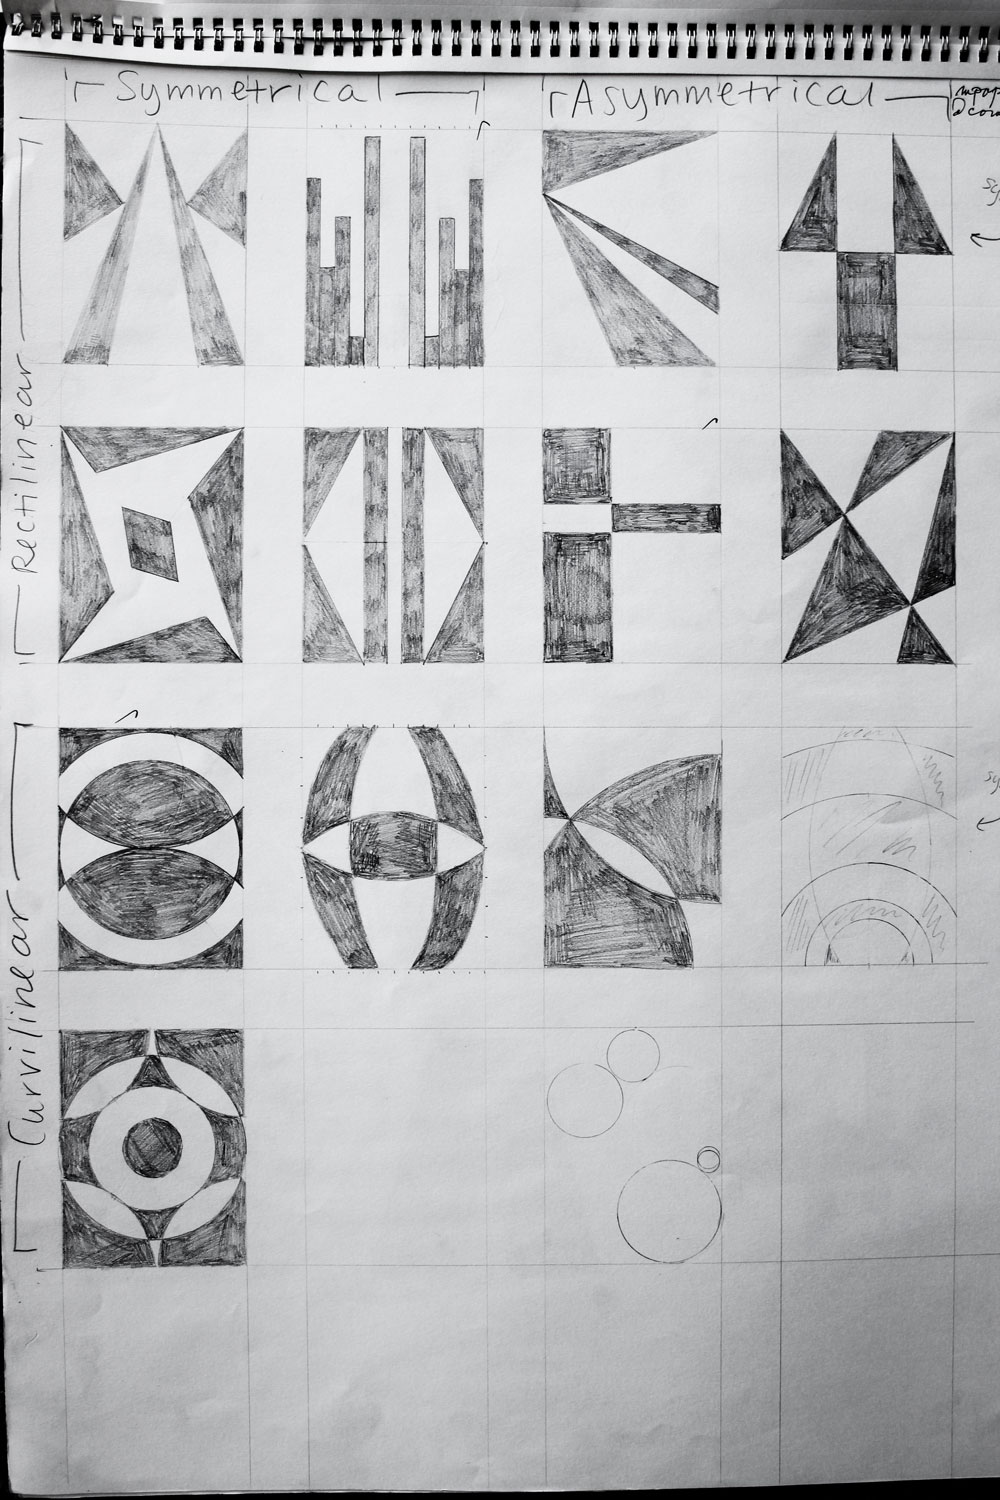 Symmetrical
Asymmetrical
Rectilinear
Curvilinear